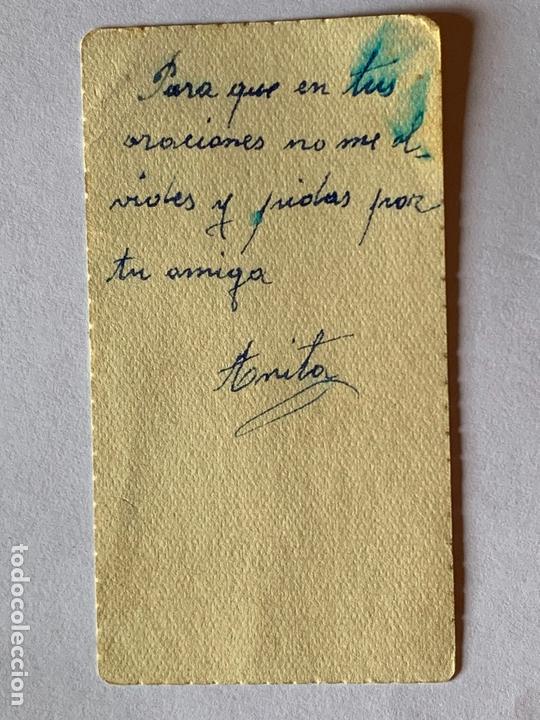 Para que en tus
oraciones no me ol-
vides y pidas por
tu amiga
Anita
todocoleccion.net